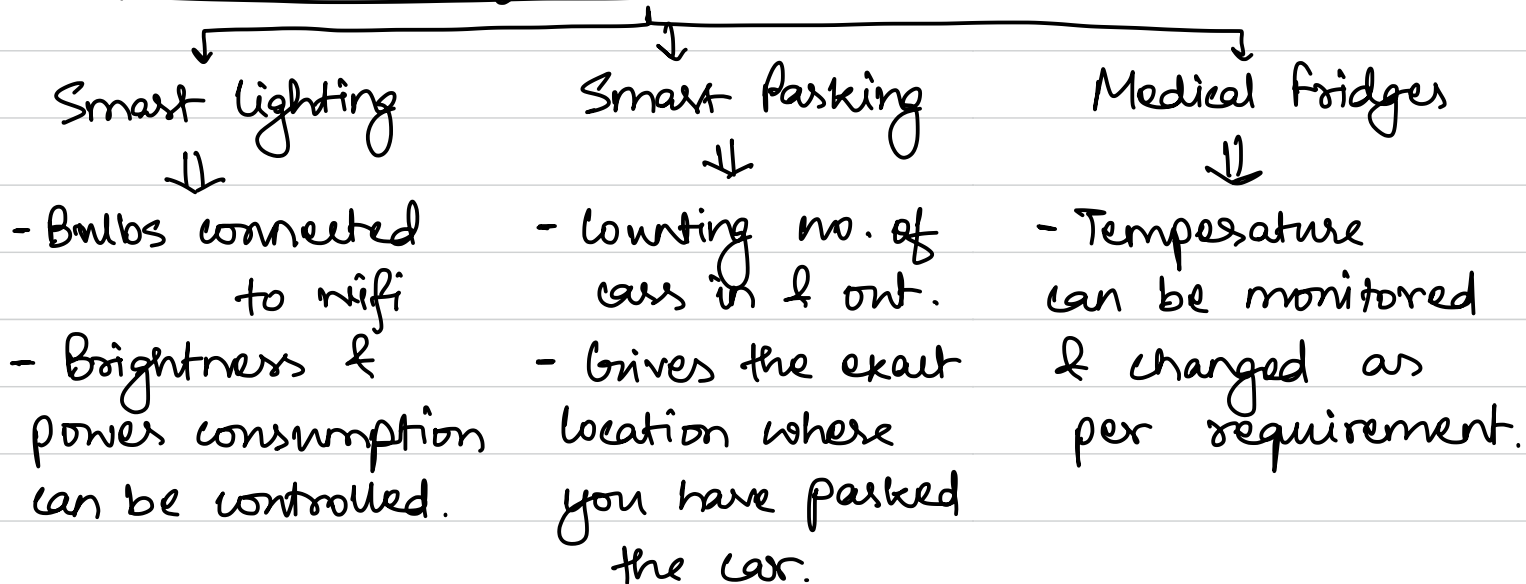 Smart lighting
⇓
- Bulbs connected
to wifi
- Brightness &
power consumption
can be controlled.
Smart Parking
⇓
- Counting no. of
cars in & out.
- Gives the exact
location where
you have parked
the car.
Medical fridges
⇓
- Temperature
can be monitored
& changed as
per requirement.